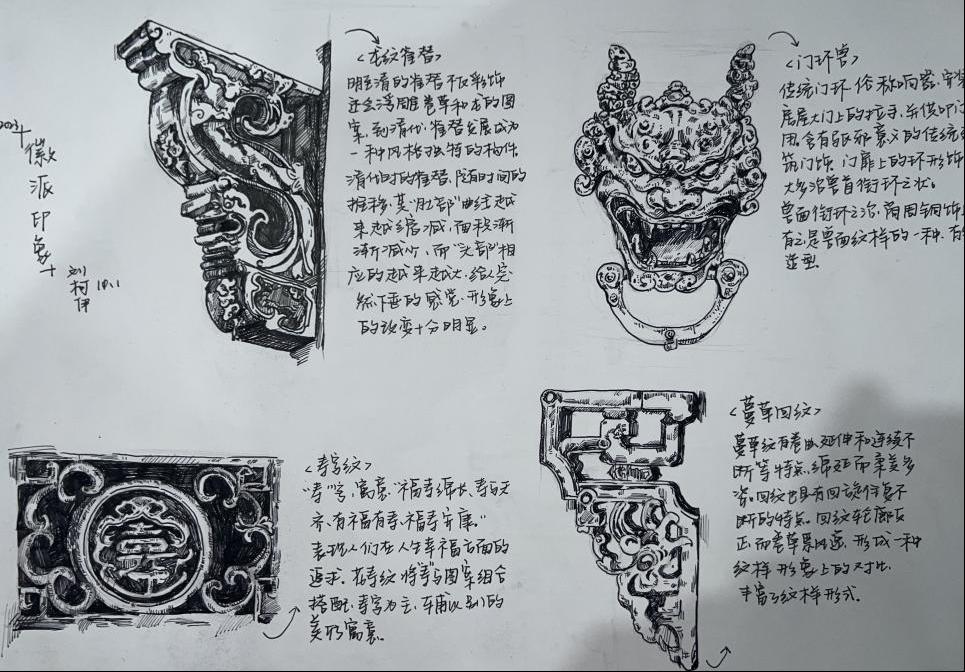 2023+
徽派印象+
刘柯伊 10.1.
<龙纹雀替>
明至清的雀替不仅彩饰
还会浮雕卷草和龙的图
案,到清代,雀替发展成为
一种风格独特的构件.
清代时的雀替,随着时间的
推移,其"肚部"曲线越
来越缩减,面积渐
渐减小,而"头部"相
应的越来越大,给人完
下垂的感觉.形象上
的改变十分明显。
<门环兽>
传统门环俗称响器.安装
房屋大门上的拉手,并供叩门
用,含有驱邪意义的传统
筑门饰,门扉上的环形饰
大多沿兽首衔环之状。
兽面衔环之
有之是兽面纹样的一种,有
造型
<寿字纹>
"寿"字,寓意"福寿绵长、寿与天
齐、有福有寿、福寿安康。"
表现人们在人生幸福方面的
追求.在寿纹将寿与图案组合
搭配,寿字为主,车甫以别的
美好寓意。
<蔓草回纹>
蔓草纹有卷曲延伸和连续不
断等特点.绵延而柔美多
姿。回纹也具有回旋往复不
断的特点。回纹轮廓反
正.而卷草
纹样形象上的对比.
丰富了纹样形式.